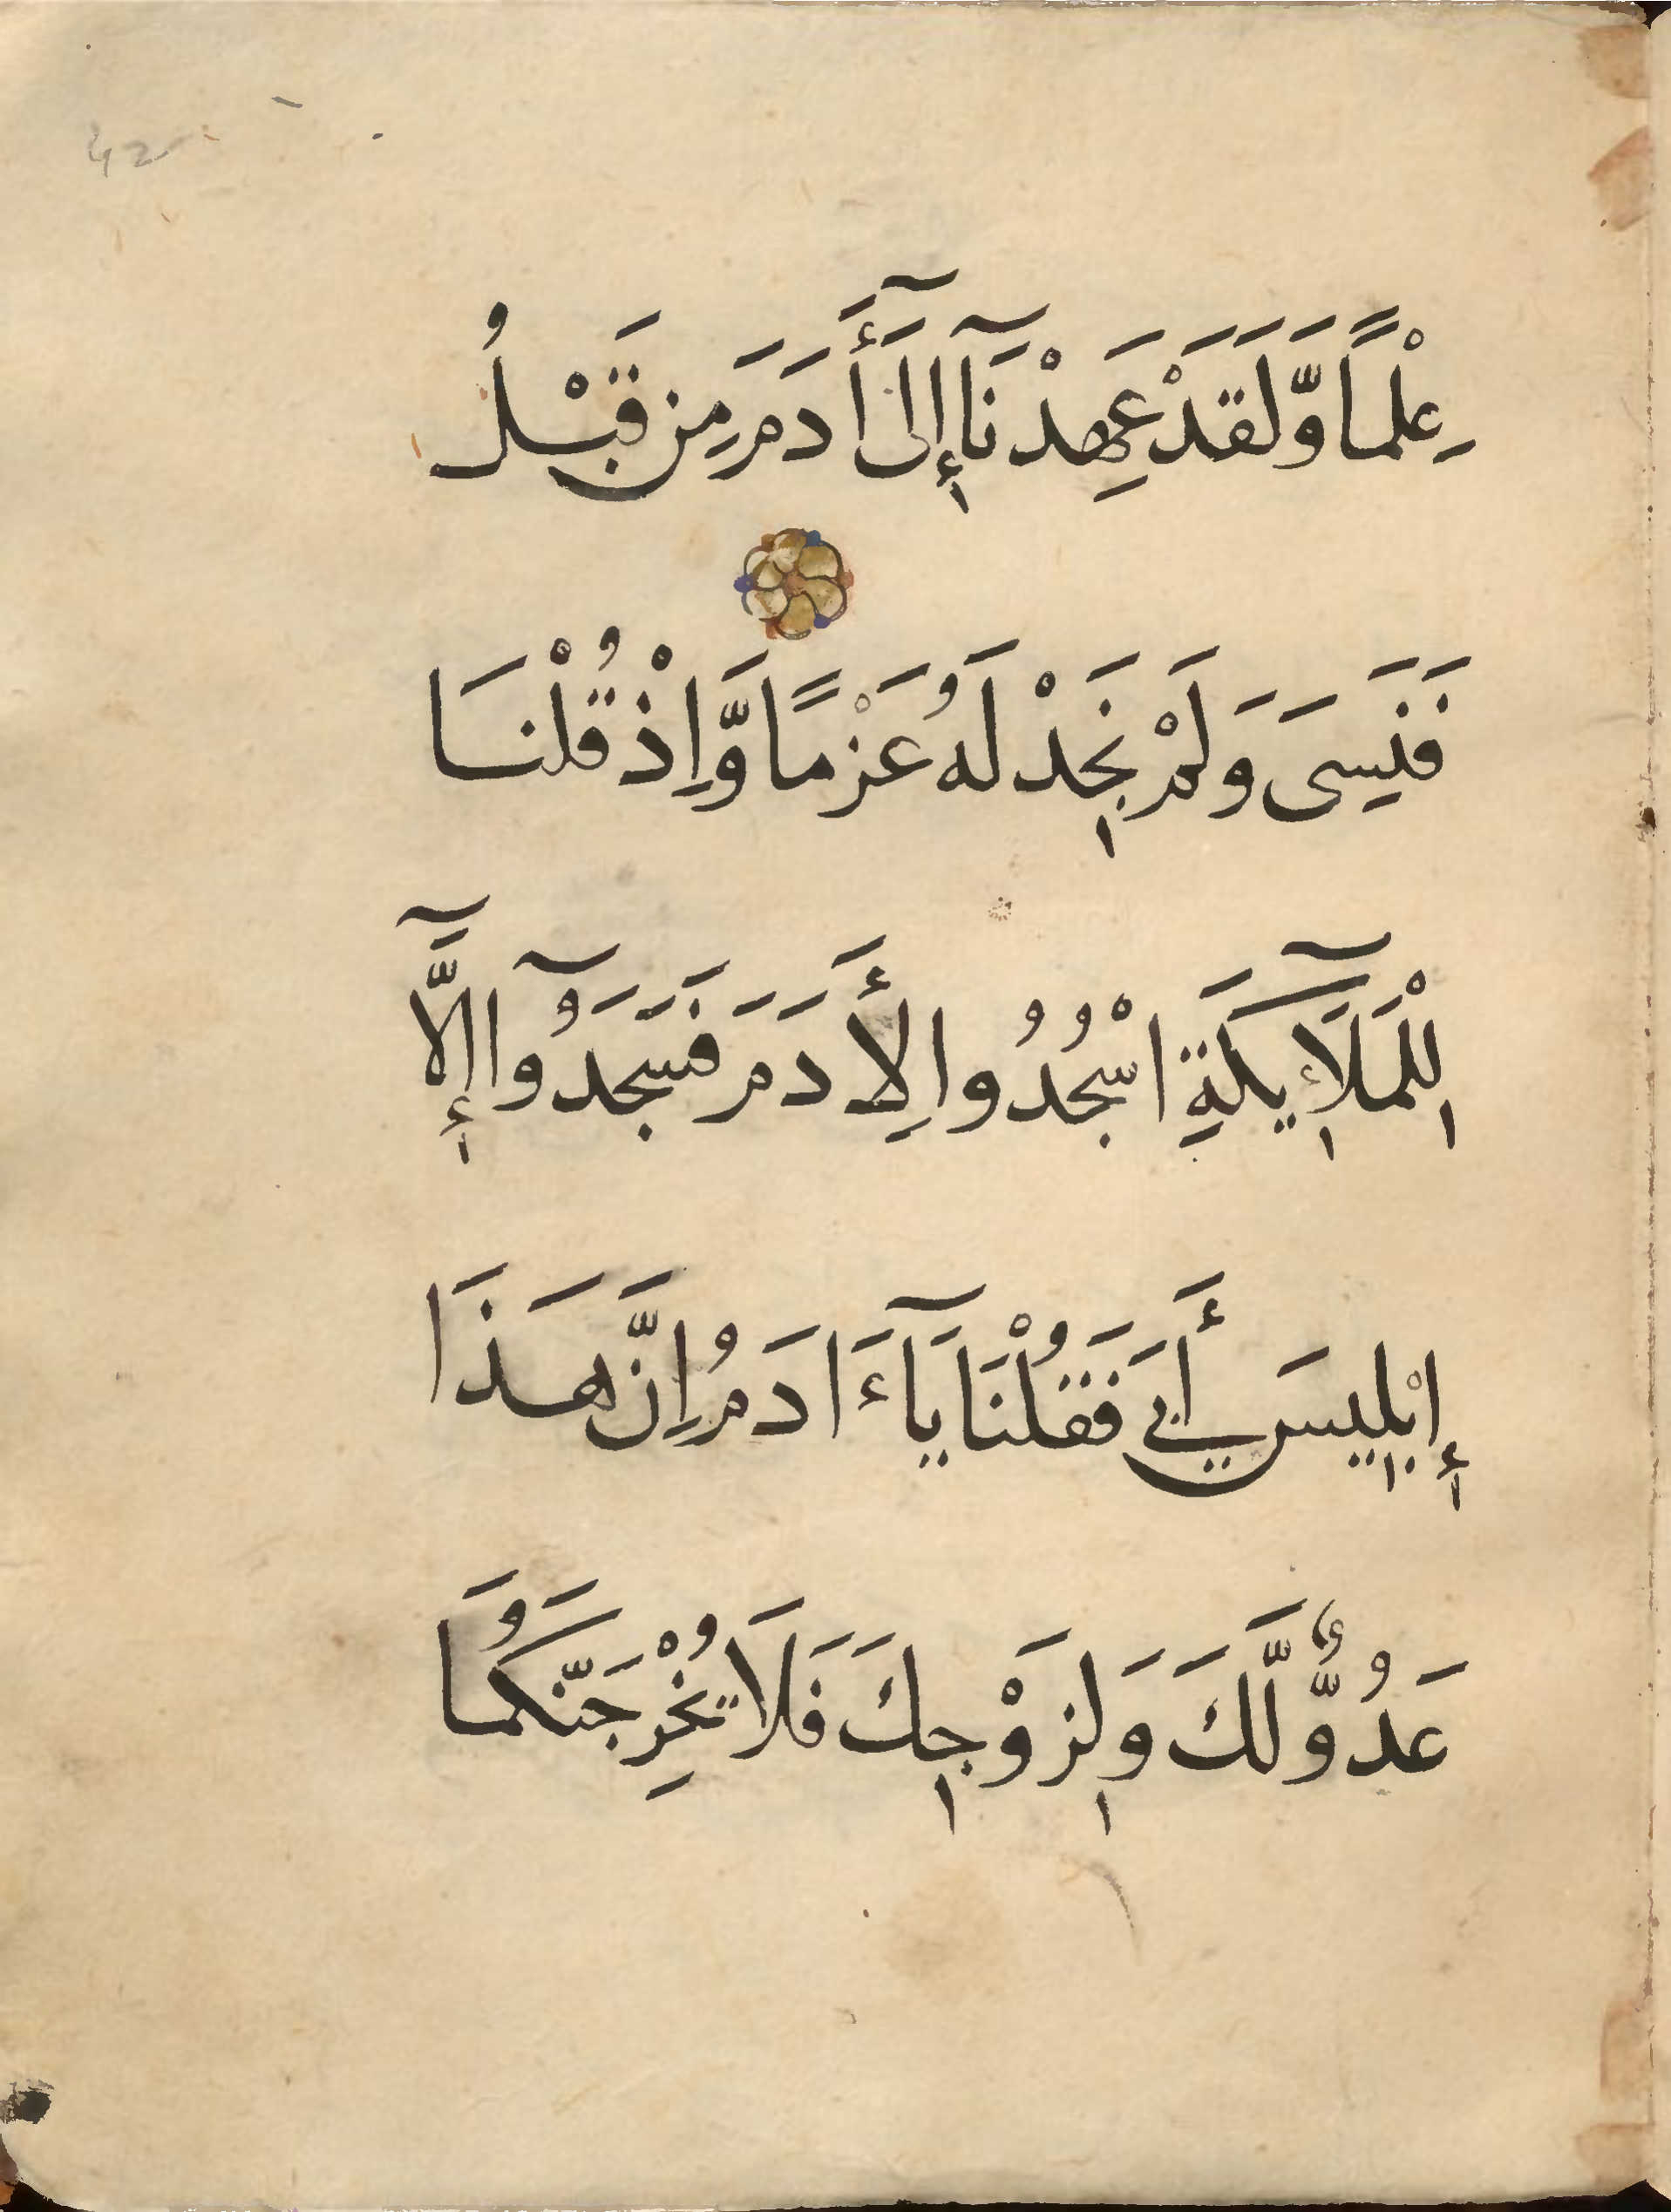 42
عِلْمًا وَّلَقَدْ عَهِدْنَآ إِلَىٰٓ أَدَمَ مِن قَبْلُ
فَنَسِىَ وَلَمْ نَجِدْ لَهُ عَزْمًا وَّاِذْ قُلْنَا
لِلْمَلَآئِكَةِ اسْجُدُوا لِأَدَمَ فَسَجَدُوٓا إِلَّآ
إِبْلِيسَ أَبَي فَقُلْنَا يَآءَادَمُ اِنَّ هَذَا
عَدُوٌّ لَّكَ وَلِزَوْجِكَ فَلَا يُخْرِجَنَّكُمَا